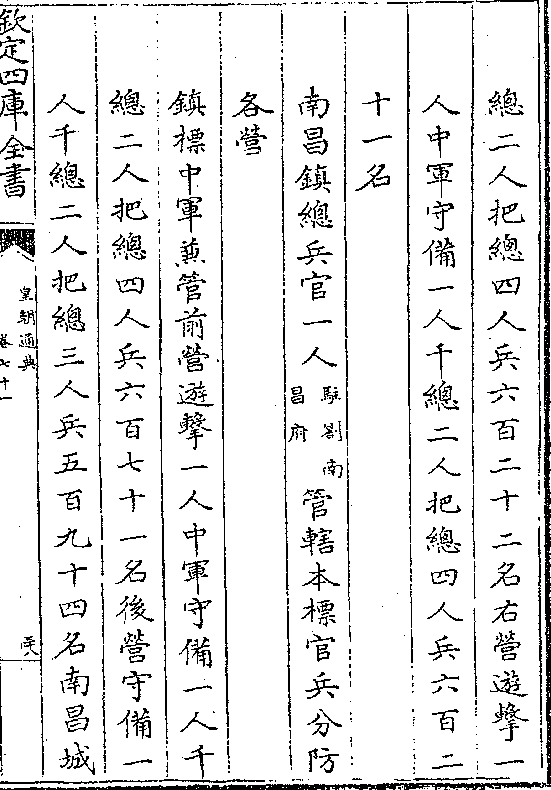 總二人把總四人兵六百二十二名右營遊擊一
人中軍守備一人千總二人把總四人兵六百二
十一名
南昌鎮總兵官一人駐劄南昌府管轄本標官兵分防
各營
鎮標中軍兼管前營遊擊一人中軍守備一人千
總二人把總四人兵六百七十一名後營守備一
人千總二人把總三人兵五百九十四名南昌城
欽定四庫全書
皇朝通典
卷七十一